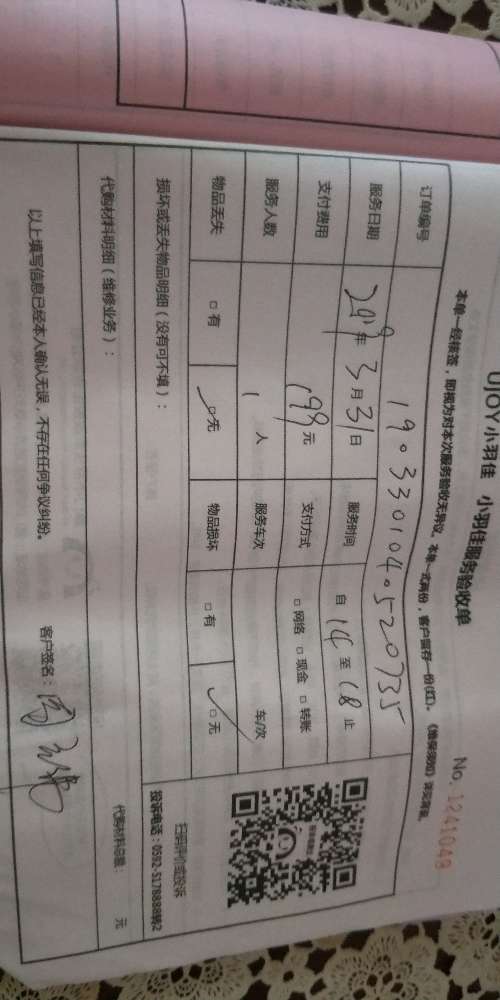 UJOY小羽佳 小羽佳服务验收单
No. 1241048
本单一经核签，即视为对本次服务验收无异议，本单一式两份，客户留存一份(红)。
订单编号 190330104052073 5
服务日期 2019年3月31日 服务时间 自14至18止
支付费用 199元 支付方式 □网络 □现金 □转账
服务人数 1人 服务车次 车/次
物品丢失 □有 □无 物品损坏 □有 □无
损坏或丢失物品明细（没有可不填）：
扫码评价或投诉
投诉电话：0592-5178888转2
代购材料明细（维修业务）：
代购材料总额： 元
以上填写信息已经本人确认无误，不存在任何争议纠纷。
客户签名：周